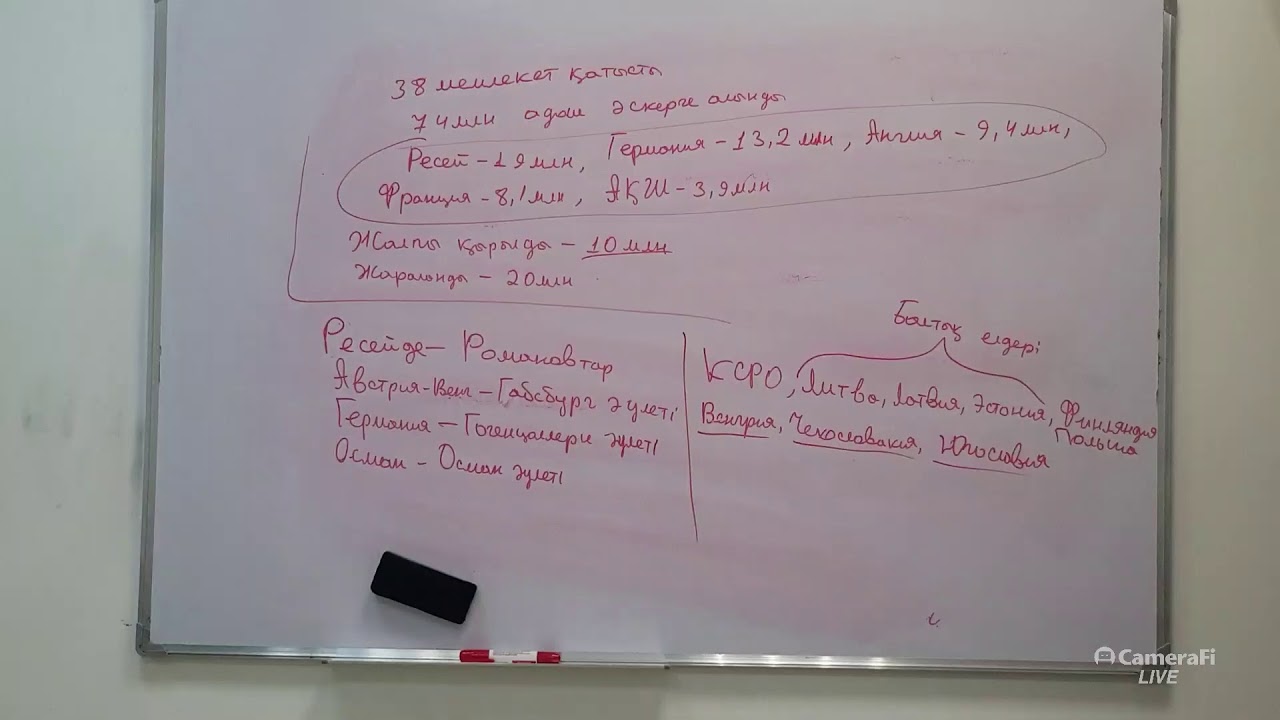 38 мемлекет қатысты
74 млн адам әскерге алынды
Ресей – 19 млн, Германия – 13,2 млн, Англия – 9,4 млн,
Франция – 8,1 млн, АҚШ – 3,9 млн
Жалпы қырылды – 10 млн
Жараланды – 20 млн
Ресейде – Романовтар
Австрия-Венг – Габсбург әулеті
Германия – Гогенцоллерн әулеті
Осман – Осман әулеті
Балтық елдері
КСРО, Литва, Латвия, Эстония, Финляндия
Польша
Венгрия, Чехословакия, Югославия
CameraFi
LIVE